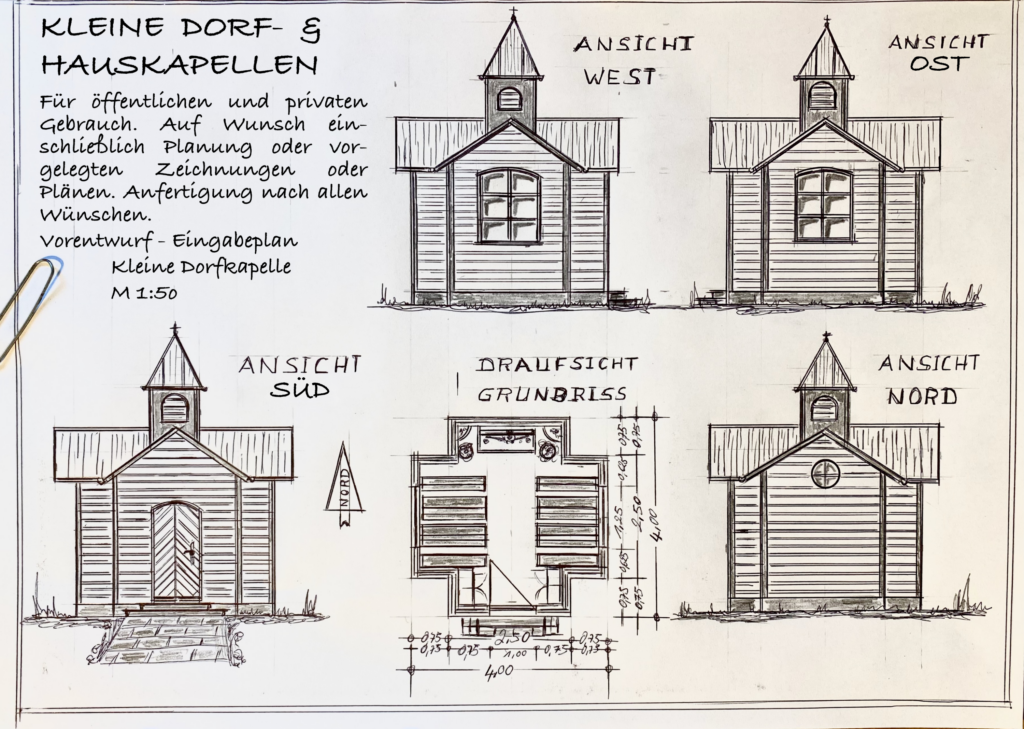 KLEINE DORF- &
HAUSKAPELLEN
Für öffentlichen und privaten
Gebrauch. Auf Wunsch ein-
schließlich Planung oder vor-
gelegten Zeichnungen oder
Plänen. Anfertigung nach allen
Wünschen.
Vorentwurf - Eingabeplan
Kleine Dorfkapelle
M 1:50
ANSICHT
WEST
ANSICHT
OST
ANSICHT
SÜD
NORD
DRAUFSICHT
GRUNDRISS
0,75 0,75
2,50
1,25
4,00
0,75 0,75
0,75 2,50 0,75
0,75 0,75 1,00 0,75 0,75
4,00
ANSICHT
NORD